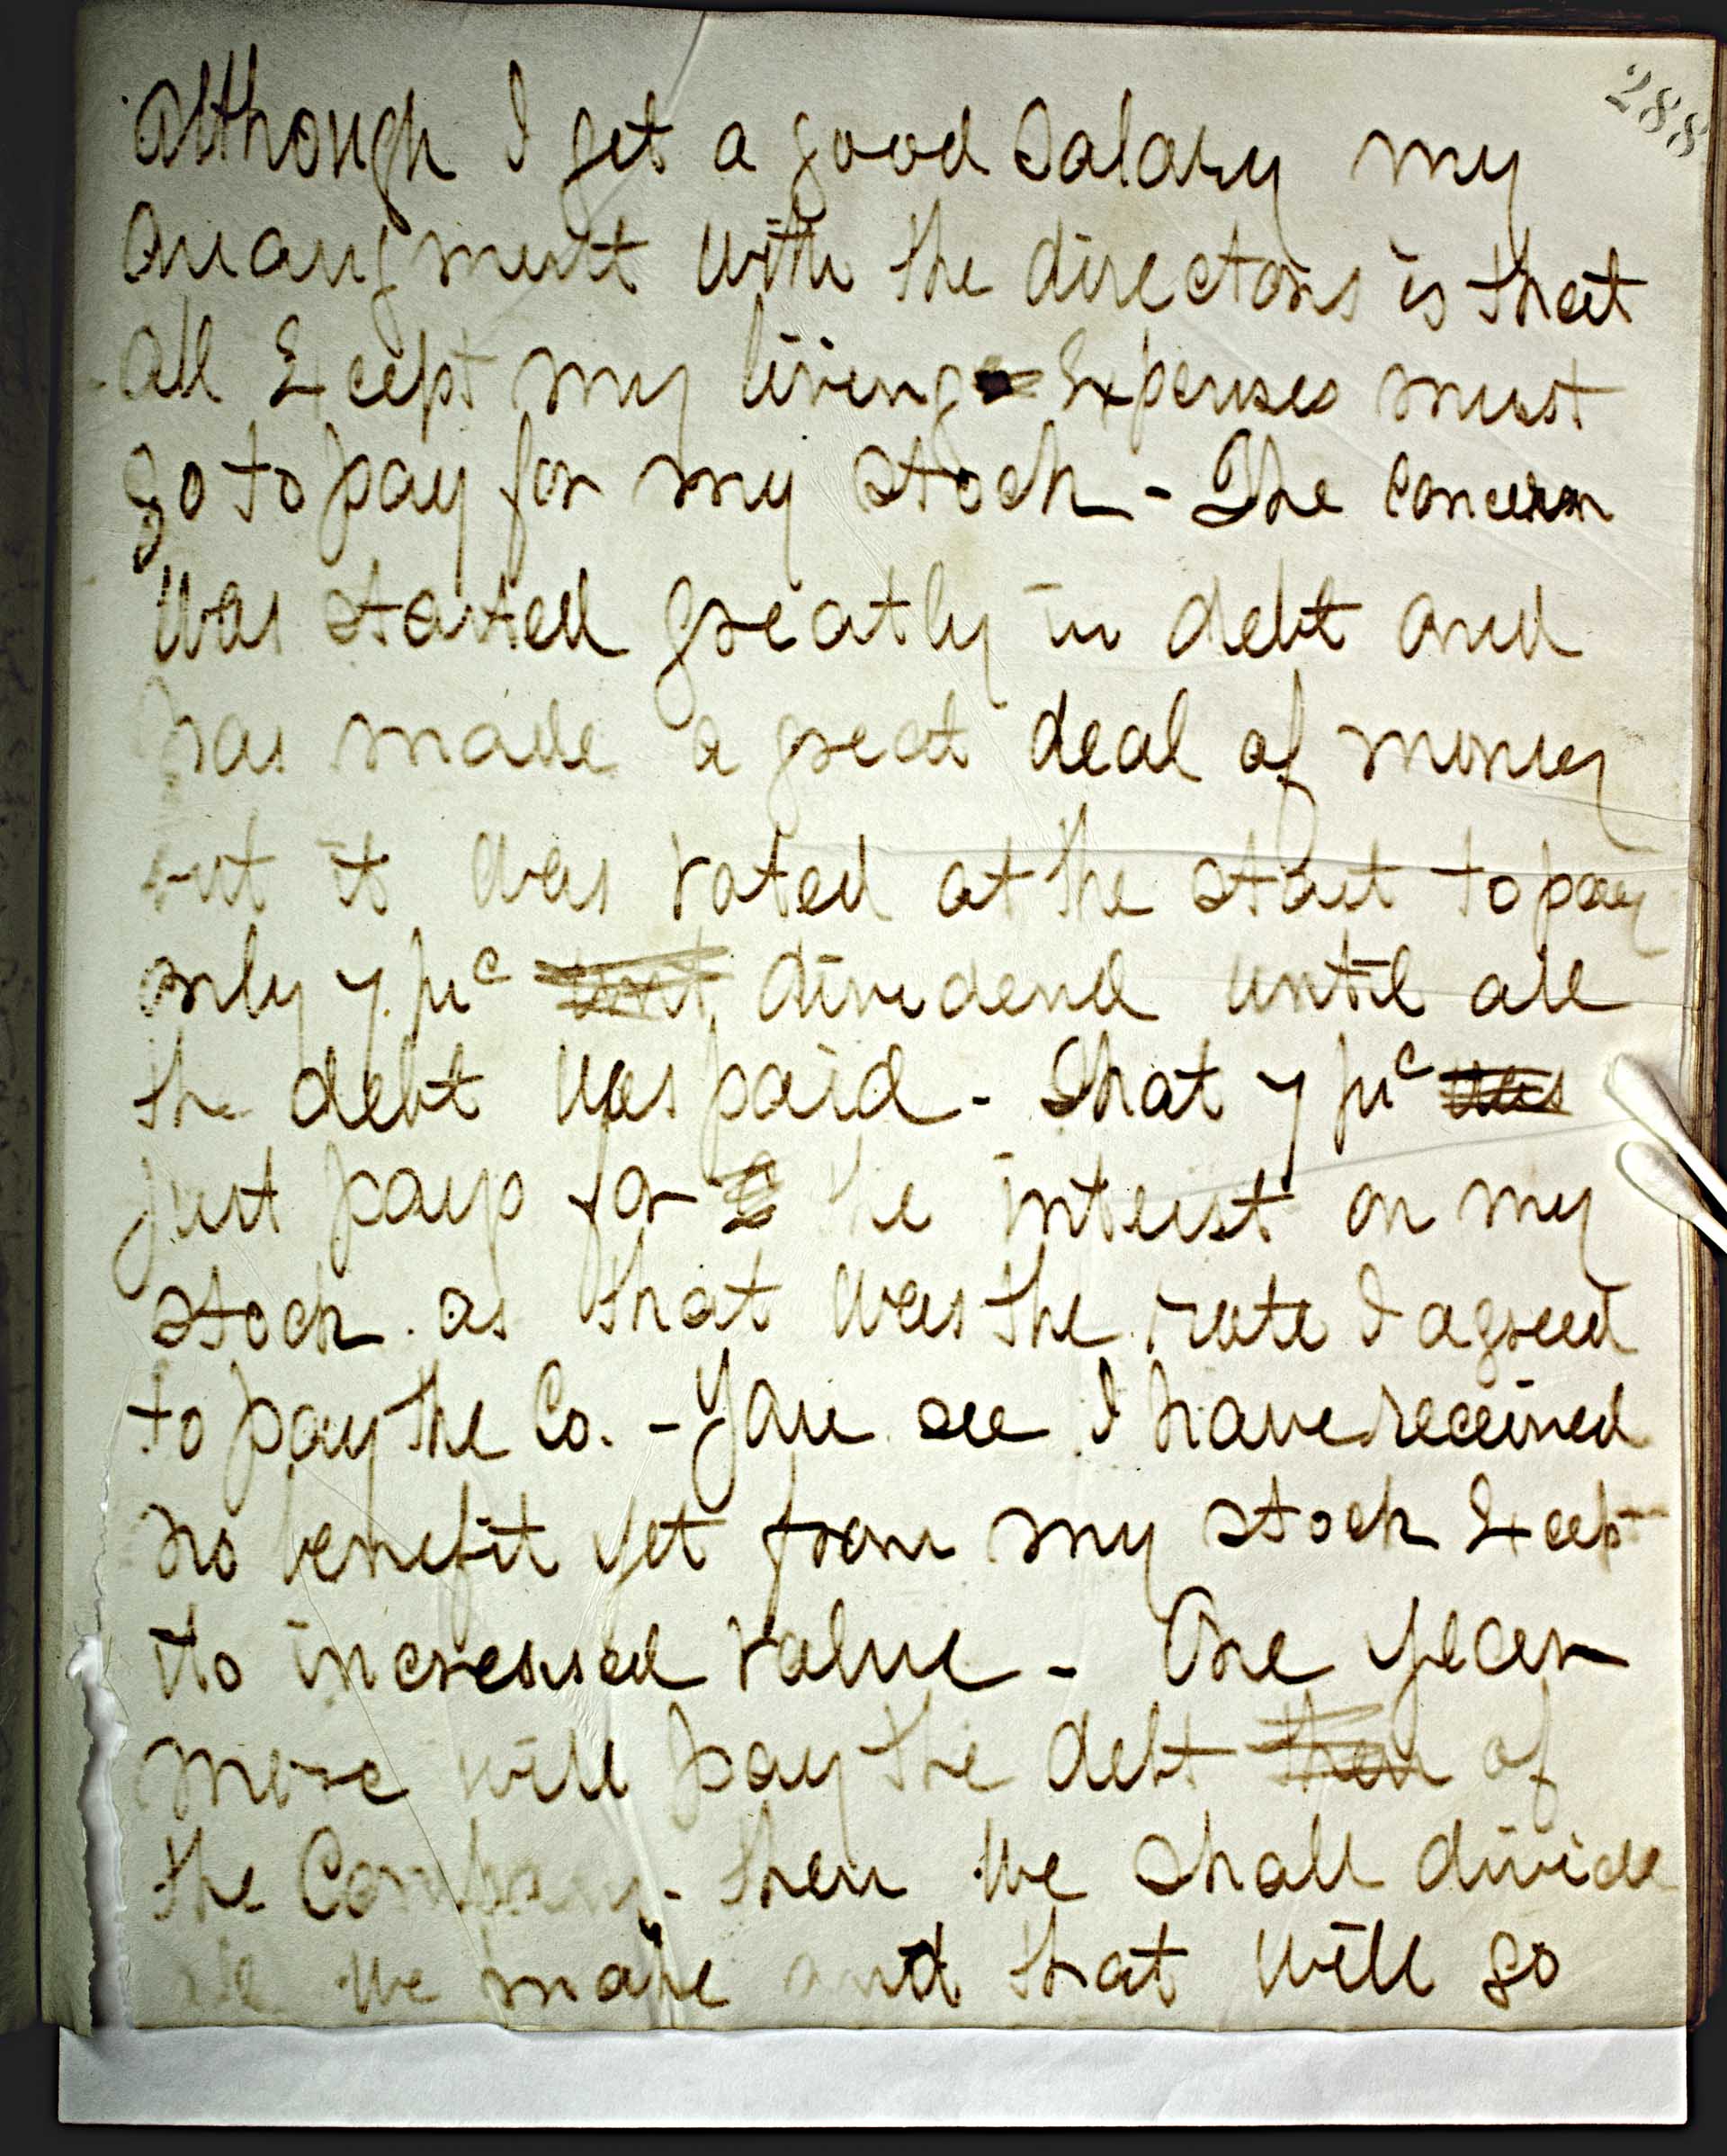 288
Although I get a good salary my
arrangment with the directors is that
all Except my living Expenses must
go to pay for my stock - The Concern
was started greatly in debt and
has made a great deal of money
but it was voted at the start to pay
only 7 pr c dividend until all
the debt was paid - That 7 pr c was
just pays for the interest on my
stock as that was the rate I agreed
to pay the Co. - You see I have received
no benefit yet from my stock Except
its increased value - One year
more will pay the debt then of
the Company - then we shall divide
all we make and that will go